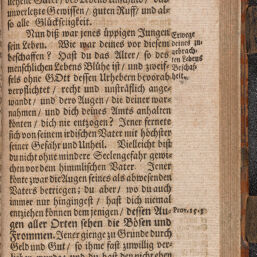 unverletzte Gewissen / guten Ruff / und al-
so alle Glückseligkeit.
Nun diß war jenes üppigen Jungen
sein Leben. Wie war deines vor diesem
beschaffen? Hast du das Alter / so des
menschlichen Lebens Blühe ist / und zweif-
fels ohne GOtt dessen Urhebern bevorab
verpflichtet / recht und unsträflich ange-
wandt / und dero Augen / die deiner war-
nahmen / und dich deines Amts anhalten
könten / dich nie entzogen? Jener fernete
sich von seinem irdischen Vater mit höchster
seiner Gefahr und Unheil. Vielleicht bist
du nicht ohne mindere Seelengefahr gewi-
chen vor dem himmlischen Vater. Jener
konte zwar die Augen seines als abwesenden
Vaters betriegen; du aber / wo du auch
immer nur hingingest / hast dich niemal
entziehen können dem jenigen / dessen Au-
gen aller Orten sehen die Bösen und
Frommen. Jener gienge zu Grunde durch
Geld und Gut / so ihme fast zuwillig ver-
Erwege
deines zu-
gebrach-
ten Lebens
Beschaf-
heit.
Prov. 15. 3